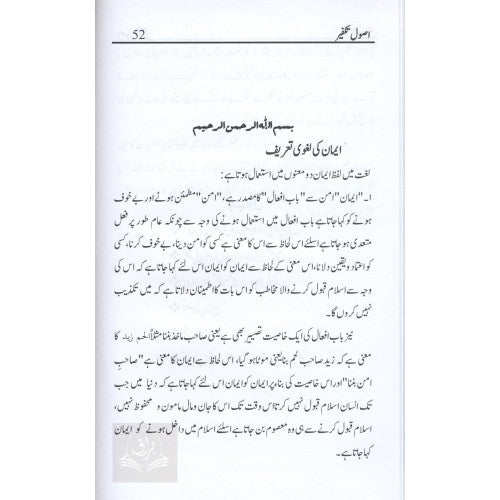 اصول تکفیر
52
بسم اللہ الرحمن الرحیم
ایمان کی لغوی تعریف
لغت میں لفظ ایمان دو معنوں میں استعمال ہوتا ہے:
۱۔ "ایمان" امن سے "باب افعال" کا مصدر ہے، "امن" مطمئن ہونے اور بے خوف
ہونے کو کہا جاتا ہے باب افعال میں استعمال ہونے کی وجہ سے چونکہ عام طور پر فعل
متعدی ہو جاتا ہے اسلئے اس لحاظ سے اس کا معنی ہے کسی کو امن دینا، بے خوف کرنا، کسی
کو اعتماد و یقین دلانا، اس معنی کے لحاظ سے ایمان کو ایمان اس لئے کہا جاتا ہے کہ اس کی
وجہ سے اسلام قبول کرنے والا مخاطب کو اس بات کا اطمینان دلاتا ہے کہ میں تکذیب
نہیں کروں گا۔
نیز باب افعال کی ایک خاصیت تصییر بھی ہے یعنی صاحب ماخذ بننا مثلاً الحم زید کا
معنی ہے کہ زید صاحب لحم بنا یعنی موٹا ہو گیا، اس لحاظ سے ایمان کا معنی ہے "صاحبِ
امن بننا" اور اس خاصیت کی بناء پر ایمان کو ایمان اس لئے کہا جاتا ہے کہ دنیا میں جب
تک انسان اسلام قبول نہیں کرتا اس وقت تک اس کا جان و مال مامون و محفوظ نہیں،
اسلام قبول کرنے سے ہی وہ معصوم بن جاتا ہے اسلئے اسلام میں داخل ہونے کو ایمان
کہا جاتا ہے۔